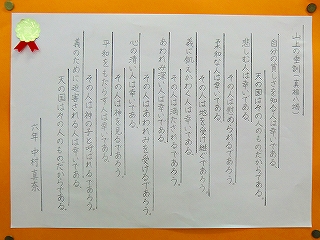 山上の垂訓（真福八端）
自分の貧しさを知る人は幸いである。
天の国はその人のものだからである。
悲しむ人は幸いである。
その人は慰められるであろう。
柔和な人は幸いである。
その人は地を受け継ぐであろう。
義に飢えかわく人は幸いである。
その人は満たされるであろう。
あわれみ深い人は幸いである。
その人はあわれみを受けるであろう。
心の清い人は幸いである。
その人は神を見るであろう。
平和をもたらす人は幸いである。
その人は神の子と呼ばれるであろう。
義のために迫害される人は幸いである。
天の国はその人のものだからである。
六年 中村 真奈